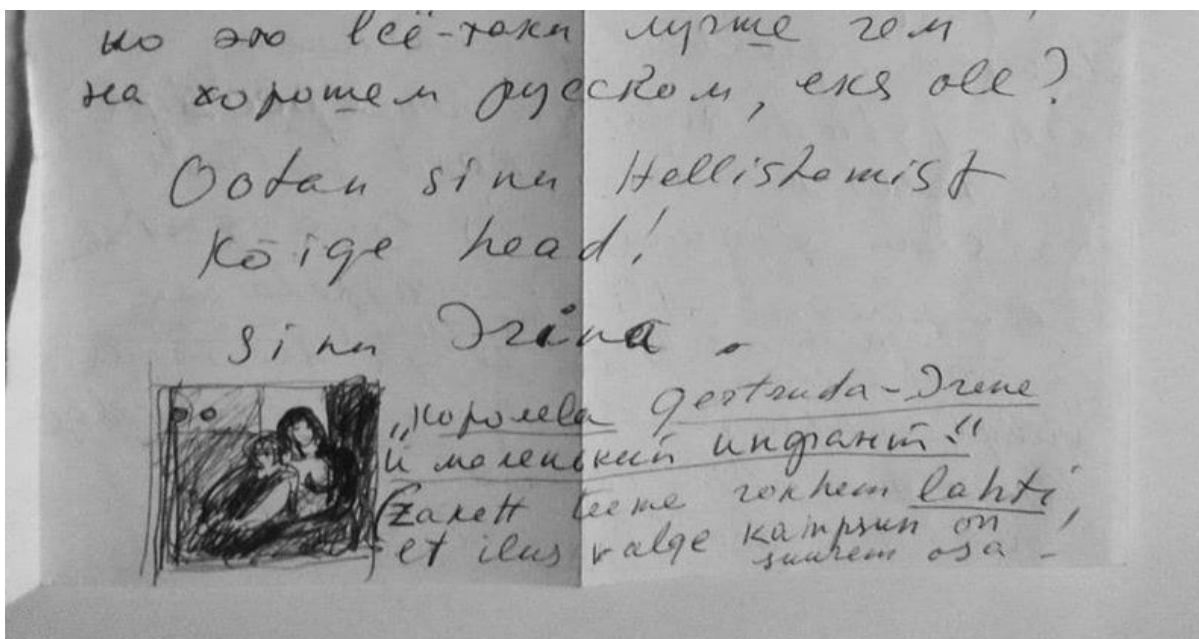 но это всё-таки лучше чем
на хорошем русском, eks ole?
Ootan sinu Hellistamist
Kõige head!
Sinu Irina.
„Королева Gertruda-Irene
и маленький инфант."
(Zakett teeme rohkem lahti,
et ilus valge kampsun on
suurem osa -